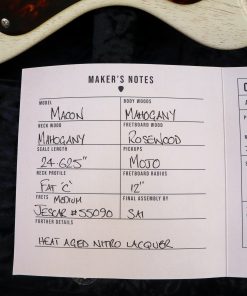 MAKER'S NOTES
MODEL
MACON
BODY WOODS
MAHOGANY
NECK WOOD
MAHOGANY
FRETBOARD WOOD
ROSEWOOD
SCALE LENGTH
24.625"
PICKUPS
MOJO
NECK PROFILE
FAT 'C'
FRETBOARD RADIUS
12"
FRETS
MEDIUM
JESCAR #55090
FINAL ASSEMBLY BY
FURTHER DETAILS
HEAT AGED NITRO LACQUER